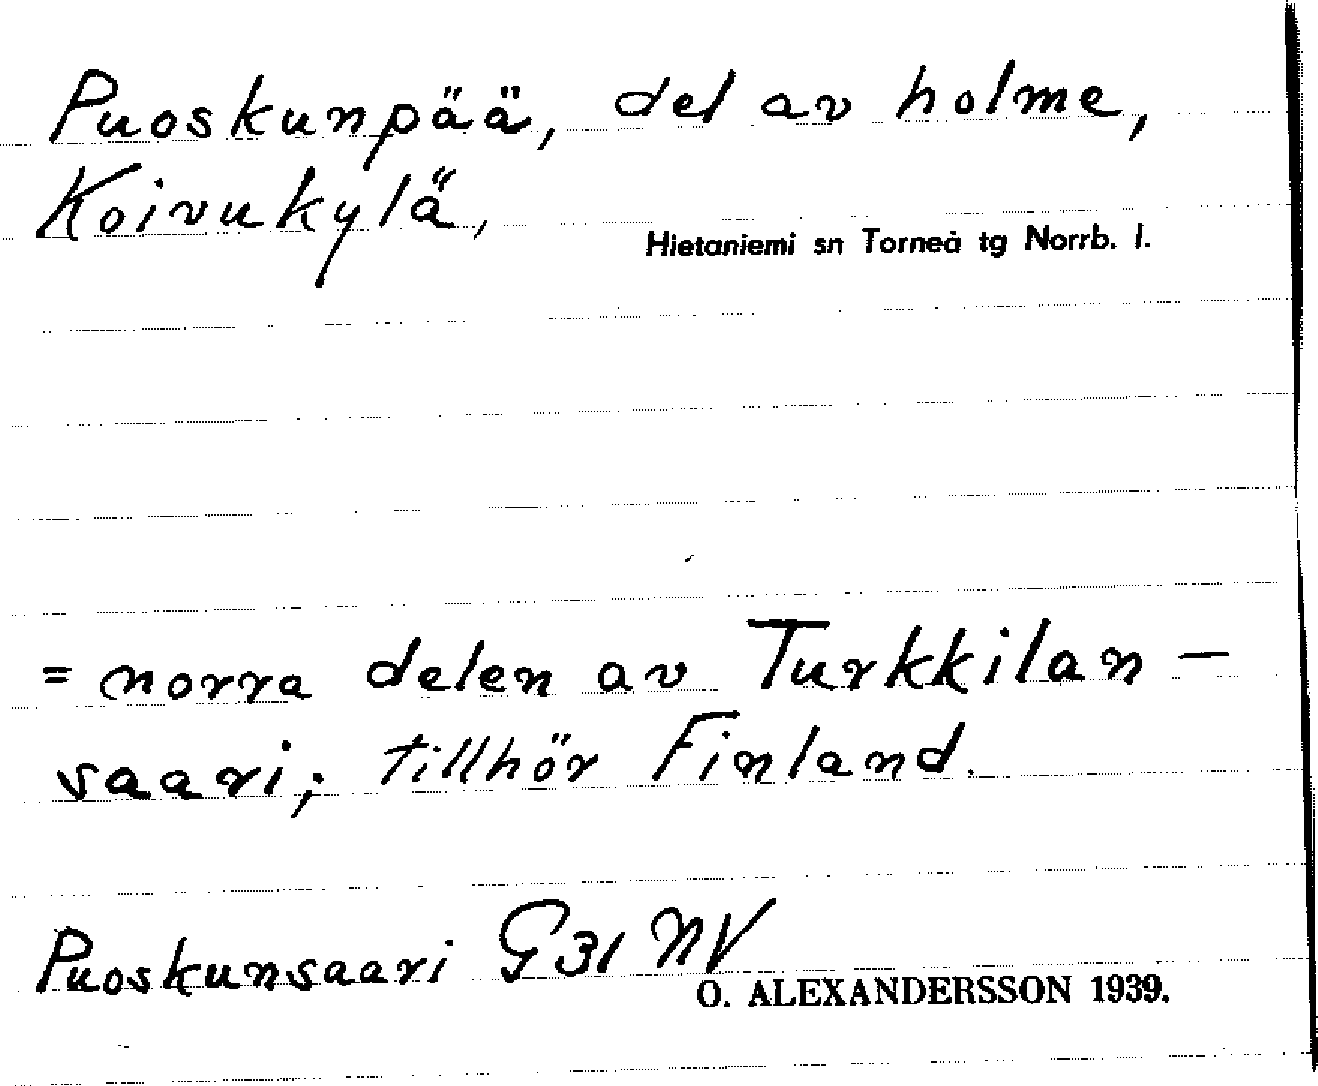 Puoskunpää, del av holme,
Koivukylä,
Hietaniemi sn Torneå tg Norrb. l.
= norra delen av Turkkilan-
saari; tillhör Finland.
Puoskunsaari G31 NV
O. ALEXANDERSSON 1939.